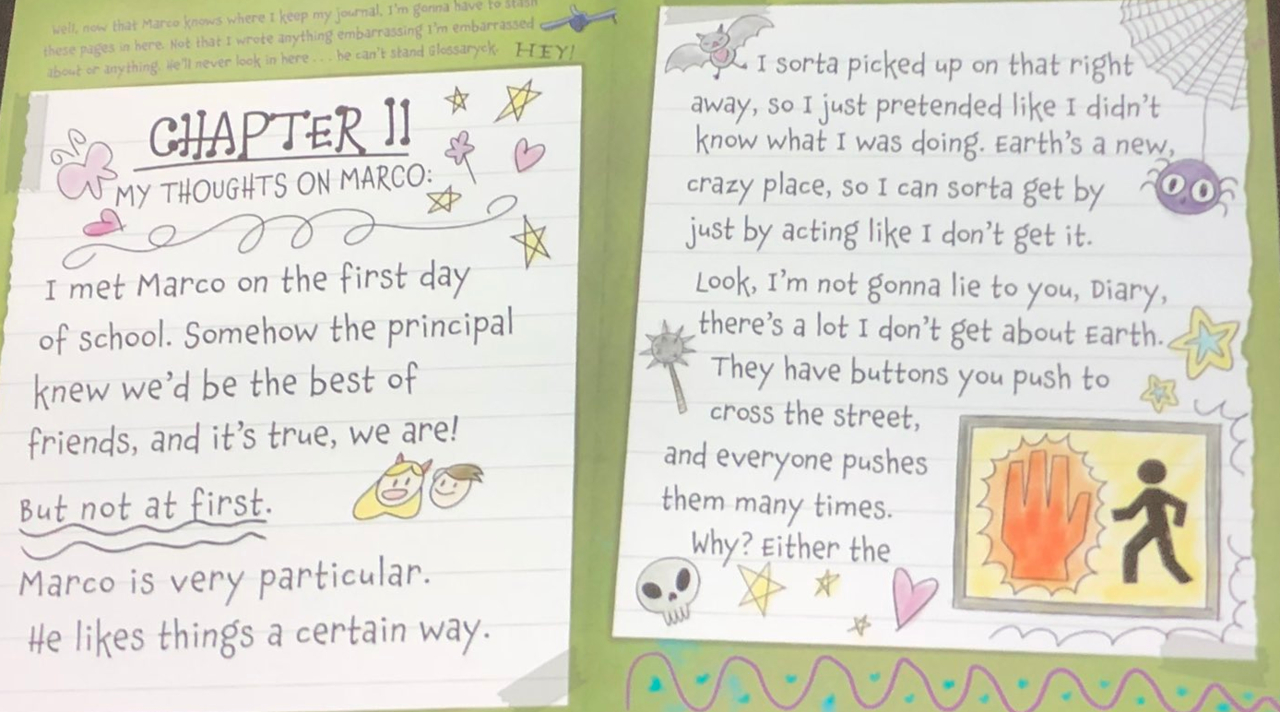 Well, now that Marco knows where I keep my journal, I'm gonna have to stash
these pages in here. Not that I wrote anything embarrassing I'm embarrassed
about or anything. He'll never look in here . . . he can't stand Glossaryck.
HEY!
CHAPTER II
MY THOUGHTS ON MARCO:
I met Marco on the first day
of school. Somehow the principal
knew we'd be the best of
friends, and it's true, we are!
But not at first.
Marco is very particular.
He likes things a certain way.
I sorta picked up on that right
away, so I just pretended like I didn't
know what I was doing. Earth's a new,
crazy place, so I can sorta get by
just by acting like I don't get it.
Look, I'm not gonna lie to you, Diary,
there's a lot I don't get about Earth.
They have buttons you push to
cross the street,
and everyone pushes
them many times.
Why? Either the